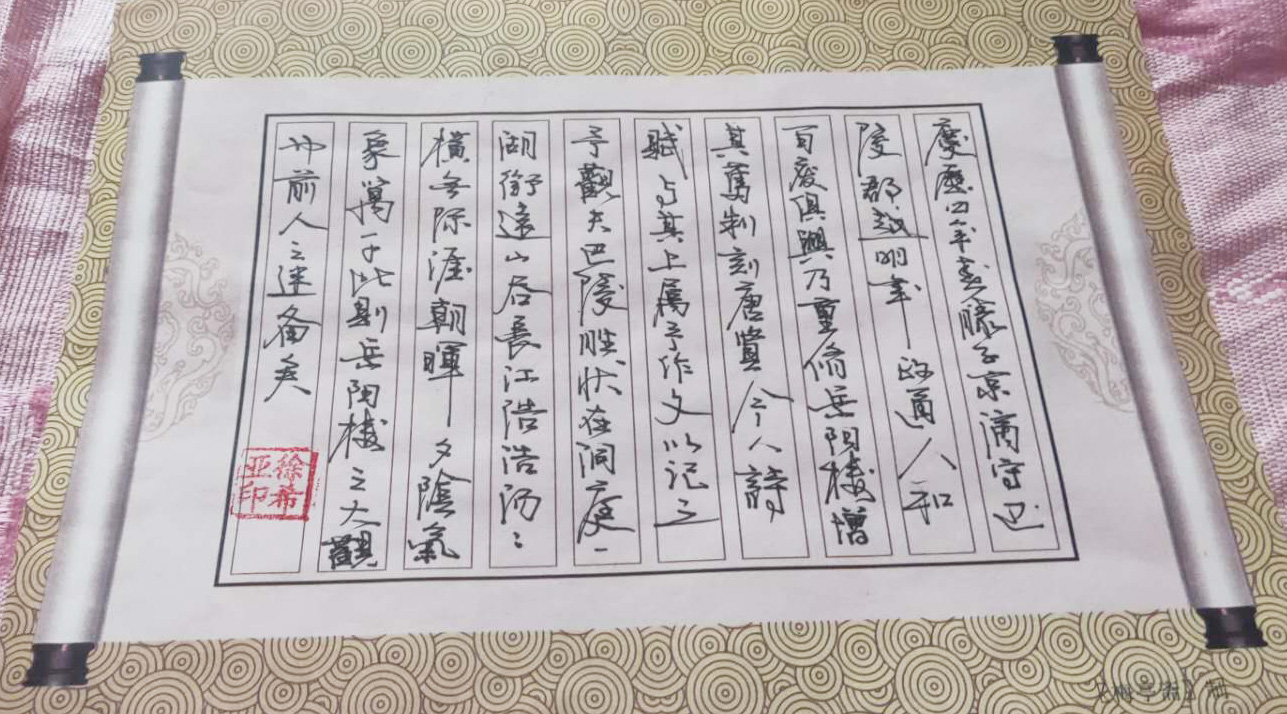 慶曆四年春滕子京謫守巴
陵郡越明年政通人和
百废俱興乃重修岳阳楼增
其舊制刻唐賢今人詩
賦与其上属予作文以记之
予觀夫巴陵胜状在洞庭一
湖銜遠山吞長江浩浩汤〻
横無际涯朝暉夕陰氣
象萬千此則岳阳楼之大觀
也前人之述备矣
徐希
亚印